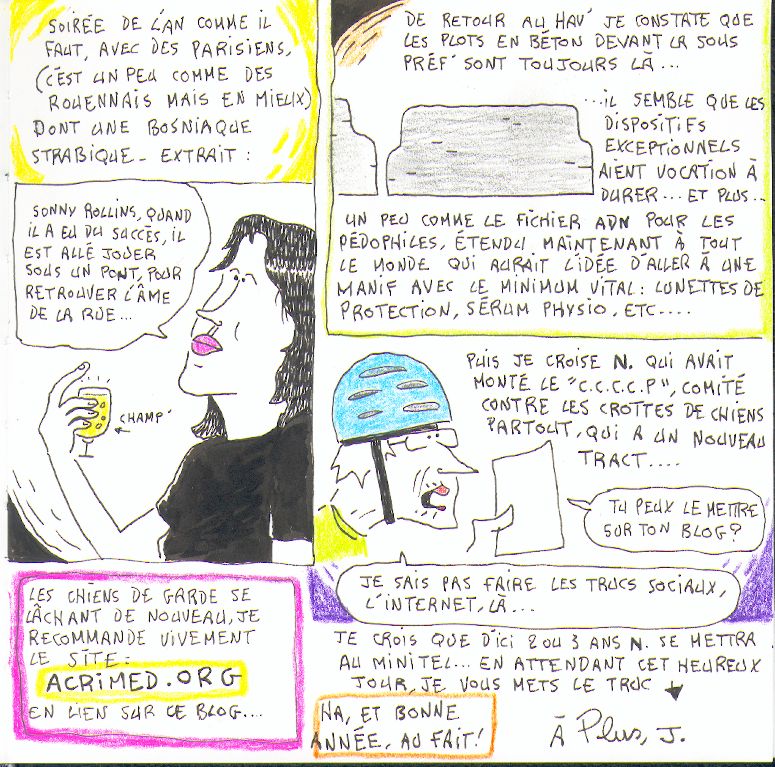 SOIRÉE DE L'AN COMME IL
FAUT, AVEC DES PARISIENS,
(C'EST UN PEU COMME DES
ROUENNAIS MAIS EN MIEUX)
DONT UNE BOSNIAQUE
STRABIQUE - EXTRAIT :
SONNY ROLLINS, QUAND
IL A EU DU SUCCÈS, IL
EST ALLÉ JOUER
SOUS UN PONT, POUR
RETROUVER L'ÂME
DE LA RUE...
CHAMP'
LES CHIENS DE GARDE SE
LÂCHANT DE NOUVEAU, JE
RECOMMANDE VIVEMENT
LE SITE :
ACRIMED.ORG
EN LIEN SUR CE BLOG....
DE RETOUR AU HAV' JE CONSTATE QUE
LES PLOTS EN BÉTON DEVANT LA SOUS
PRÉF' SONT TOUJOURS LÀ...
...IL SEMBLE QUE LES
DISPOSITIFS
EXCEPTIONNELS
AIENT VOCATION À
DURER... ET PLUS...
UN PEU COMME LE FICHIER ADN POUR LES
PÉDOPHILES, ÉTENDU MAINTENANT À TOUT
LE MONDE QUI AURAIT L'IDÉE D'ALLER À UNE
MANIF AVEC LE MINIMUM VITAL : LUNETTES DE
PROTECTION, SÉRUM PHYSIO, ETC....
PUIS JE CROISE N. QUI AVAIT
MONTÉ LE "C.C.C.C.P", COMITÉ
CONTRE LES CROTTES DE CHIENS
PARTOUT, QUI A UN NOUVEAU
TRACT....
TU PEUX LE METTRE
SUR TON BLOG ?
JE SAIS PAS FAIRE LES TRUCS SOCIAUX,
L'INTERNET, LÀ...
JE CROIS QUE D'ICI 2 OU 3 ANS N. SE METTRA
AU MINITEL... EN ATTENDANT CET HEUREUX
JOUR, JE VOUS METS LE TRUC
HA, ET BONNE
ANNÉE, AU FAIT !
À Plus, J.